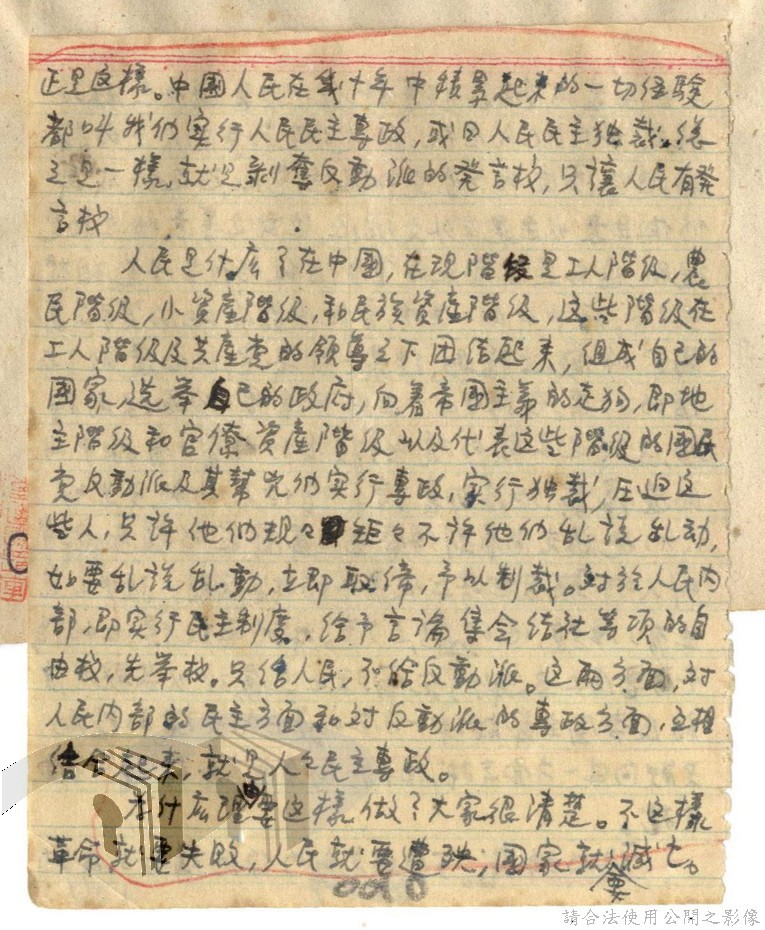 正是这樣。中國人民在幾十年中積累起来的一切经驗
都叫我们实行人民民主專政，或曰人民民主独裁。总
之是一樣，就是剥奪反動派的発言权，只讓人民有発
言权
人民是什広？在中國，在现階段是工人階级，農
民階级，小資産階级，和民族資産階级，这些階级在
工人階级及共産党的領導之下团结起来，组成自己的
國家，选举自己的政府，向着帝國主義的走狗，即地
主階级和官僚資産階级以及代表这些階级的國民
党反動派及其幫兇们实行專政，实行独裁，压迫这
些人，只許他们规々矩々不許他们乱説乱动，
如要乱説乱動，立即取缔，予以制裁。对於人民内
部，即实行民主制度，给予言論集会结社等项的自
由权，选举权。只给人民，不给反動派。这兩方面，对
人民内部的民主方面和对反動派的專政方面，互相
结合起来，就是人民民主專政。
为什広理由要这樣做？大家很清楚。不这樣
革命就要失敗，人民就要遭殃，國家就會滅亡。
0010
請合法使用公開之影像